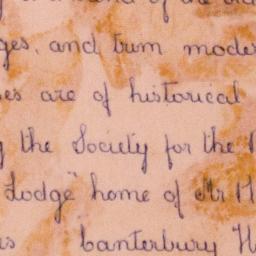 and trim
are of historical
the Society for the
Lodge" home of Mr H
Canterbury H